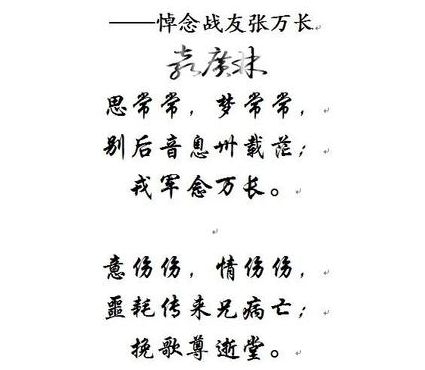 ——悼念战友张万长
袁广林
思常常，梦常常，
别后音息卅载茫；
戎军念万长。
意伤伤，情伤伤，
噩耗传来兄病亡；
挽歌尊逝堂。